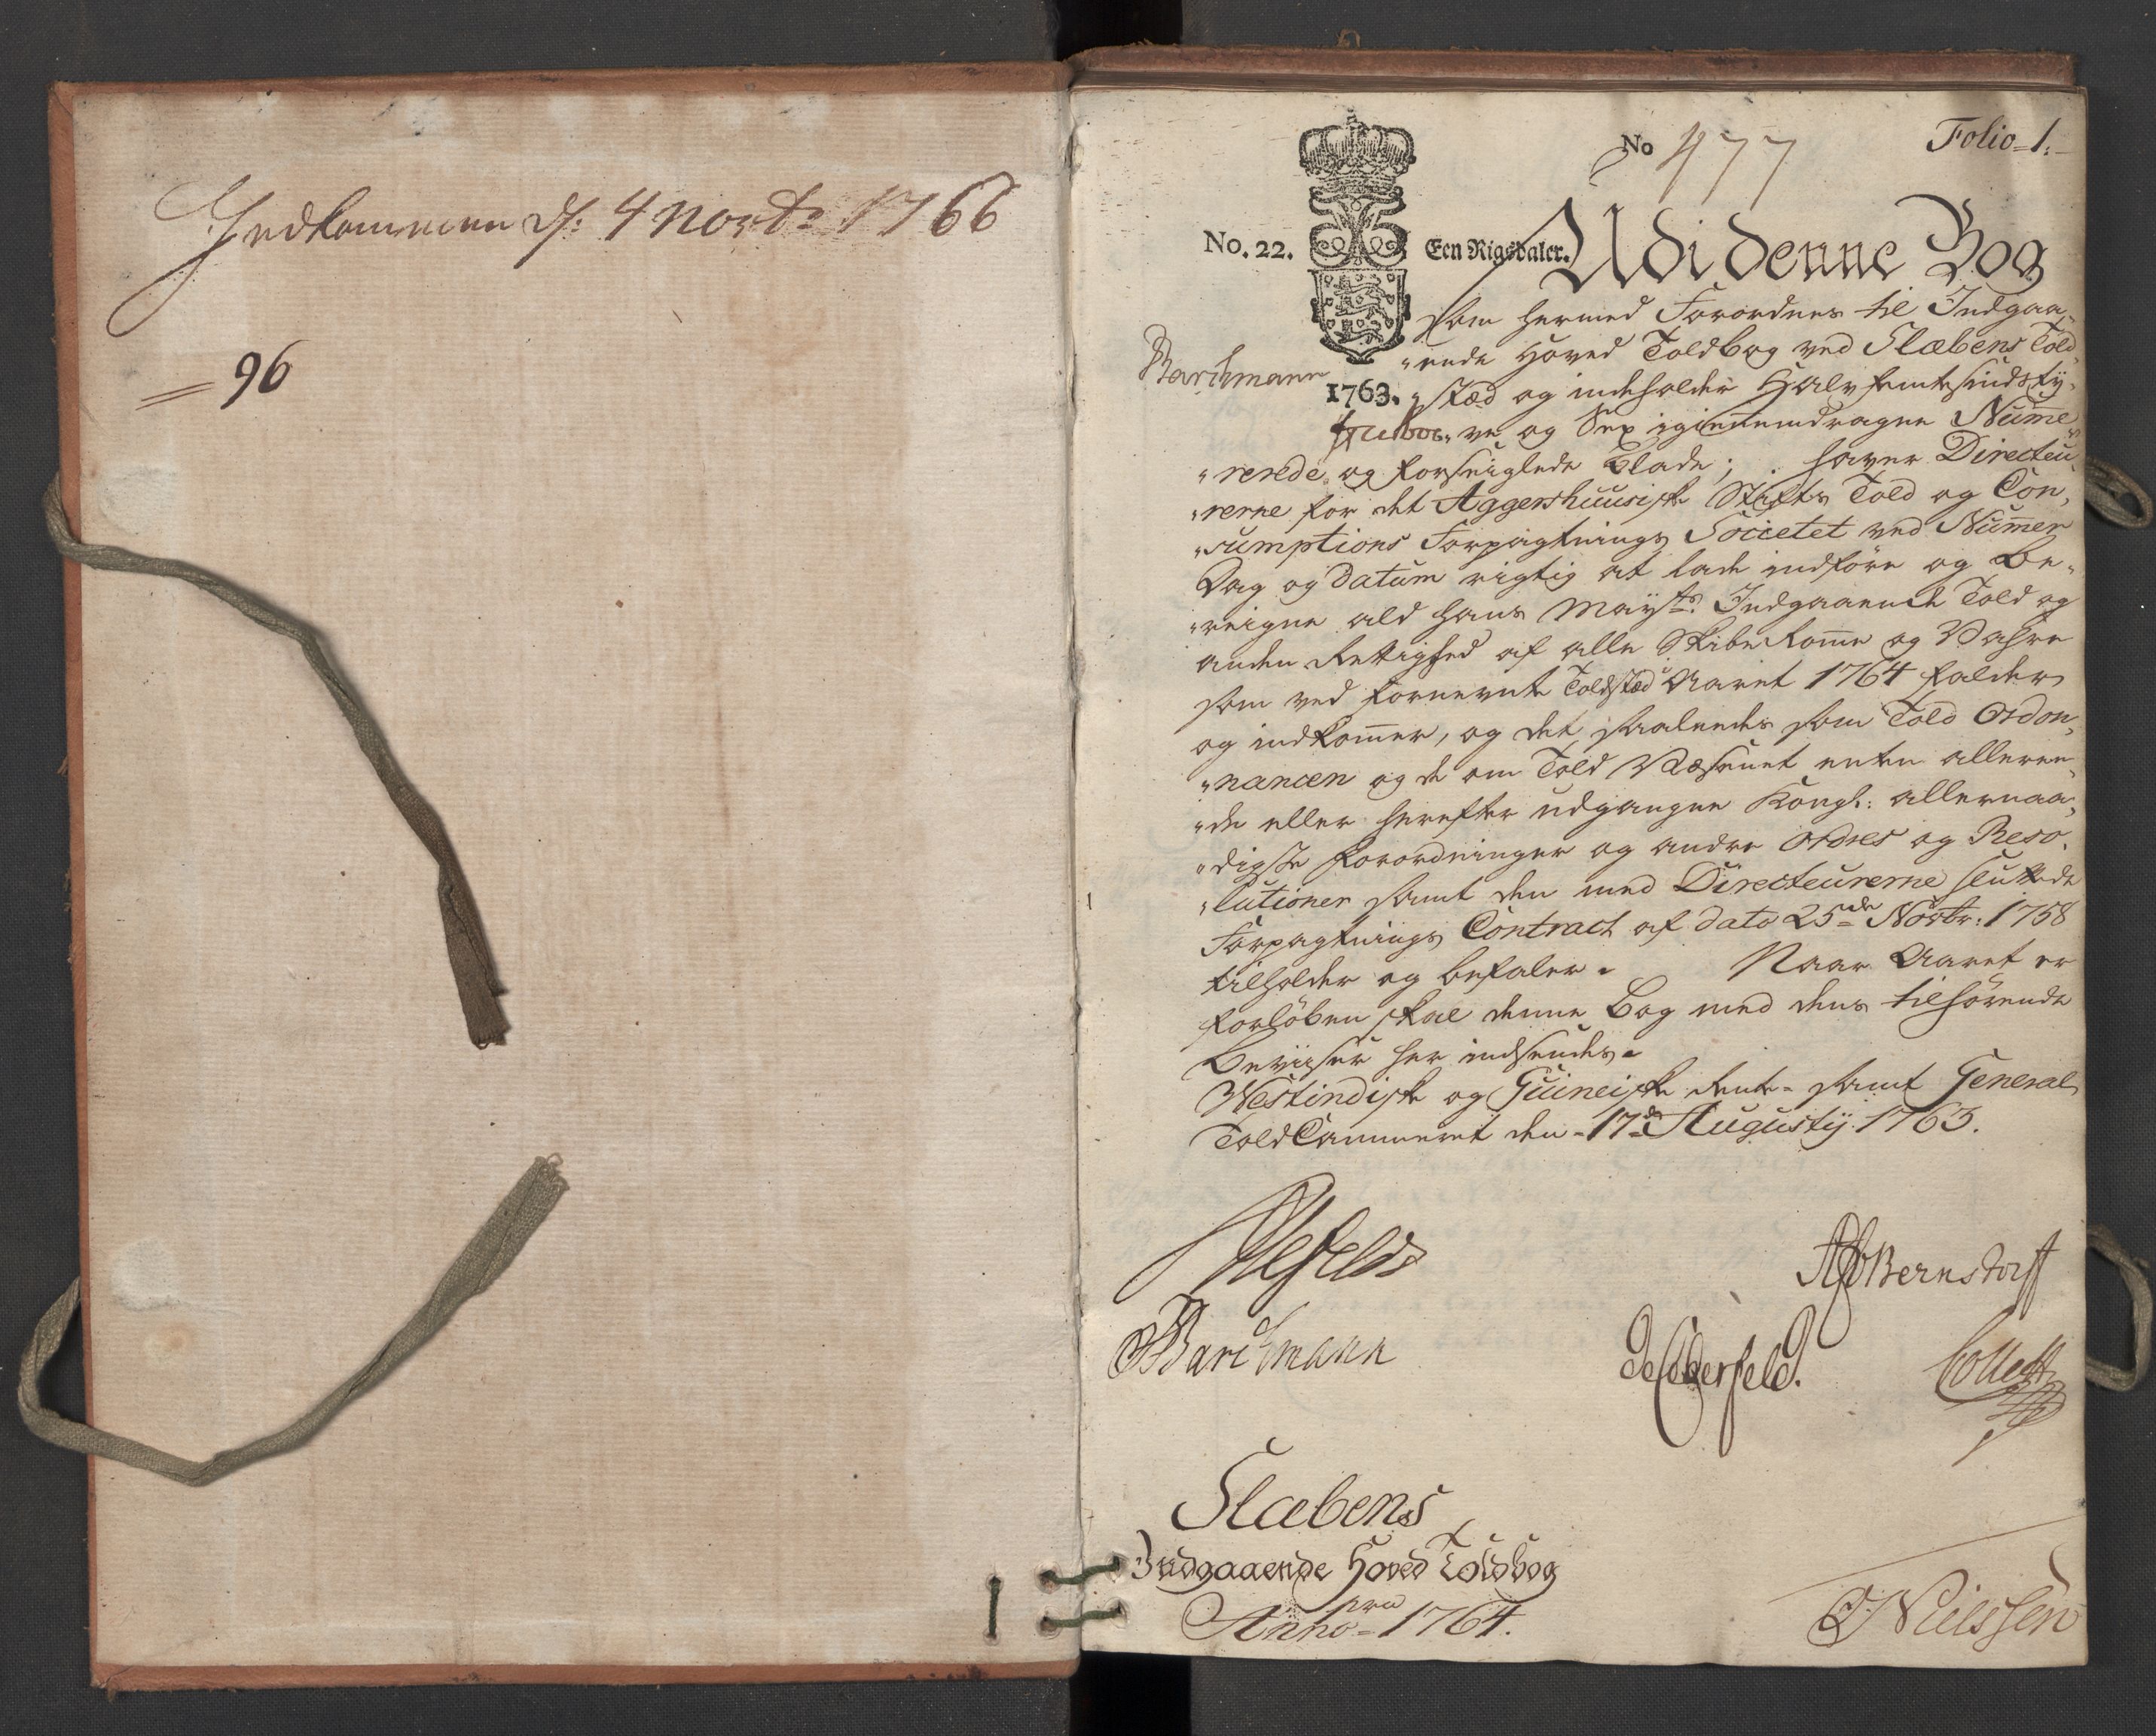 Indkommen d: 4 Novb: 1766
= 96
No 477
Folio 1.
No. 22.
Een Rigsdaler.
Udi denne Bog
som hermed Forordnes til Indgaa-
Barchmann
"ende Hoved Toldbog ved Slæbens Told-
1763.
"stæd og indeholder Halvfemtesindsty-
"ve og Sex igiennemdragne Numme-
"rerede og forseiglede Blade; haver Directeu-
"rerne for det Aggershuusiske Stifts Told og Con-
"sumptions Forpagtnings Societet ved Nummer
Dag og Datum rigtig at lade indføre og be-
"reigne ald Hans Mayts. Indgaaende Told og
anden Rettighed af alle Skibe Komne og Vahre
som ved fornevnte Toldstæd i Aaret 1764 falder
og indkommer, og det saaledes som Told Ordon-
"nancen og de om Told Væsenet enten allere-
"de eller herefter udgangne Kongl: allernaa-
"digste Forordninger og andre Ordres og Reso-
"lutioner samt den med Directeurerne sluttede
Forpagtnings Contract af Dato 25de Novbr: 1758
tilholder og befaler. Naar Aaret er
forløben skal denne Bog med dens tilhørende
Beviiser her indsendes.
Westindiske og Guineiske Rente- samt General
Told Cammeret den 17de Augustij 1763.
Ahlefeldt
Bernstorff
Barchmann
Collett
Slæbens
Indgaaende Hoved Toldbog
pro
Anno 1764.
Nielssen